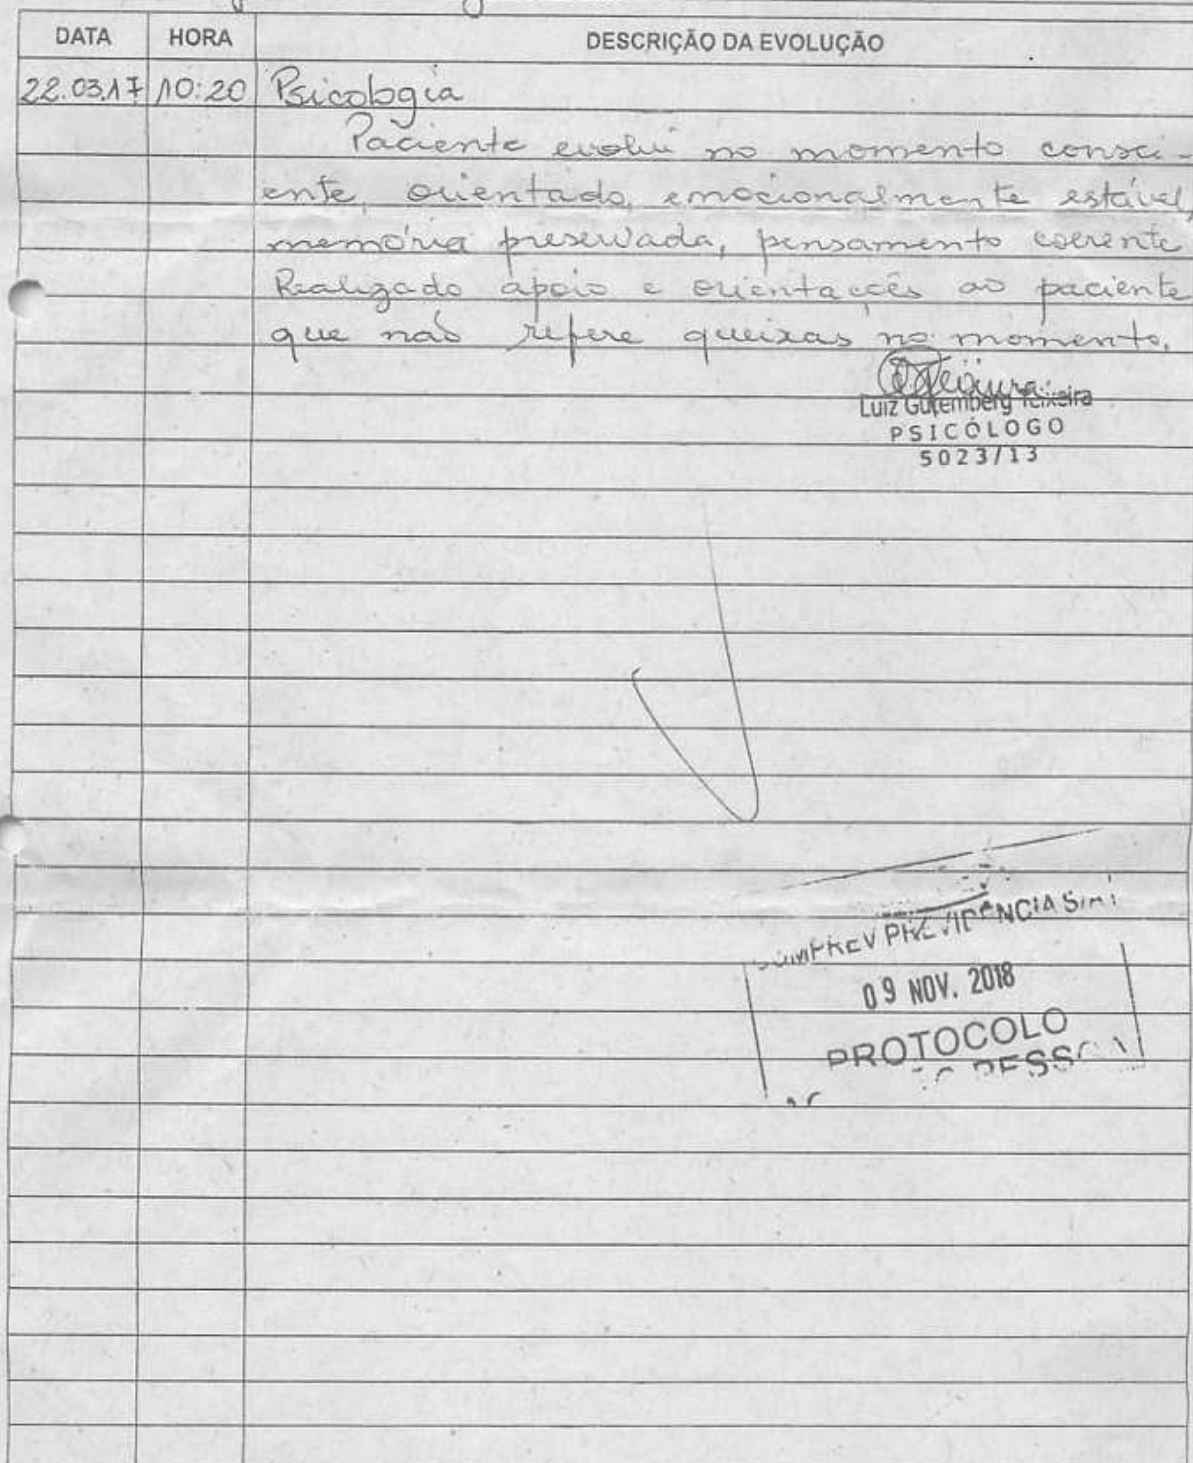 DATA HORA DESCRIÇÃO DA EVOLUÇÃO
22.03.17 10:20 Psicologia
Paciente evolui no momento consci-
ente, orientado, emocionalmente estável,
memória preservada, pensamento coerente
Realizado apoio e orientações ao paciente
que não refere queixas no momento.
Luiz Gutemberg Teixeira
PSICÓLOGO
5023/13
PREVIDENCIA
09 NOV. 2018
PROTOCOLO